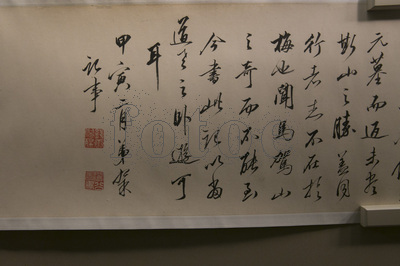 元墓而返未嘗
斯山之勝蓋同
行者志不在於
梅也聞馬駕山
之奇而不能至
今書此記以當
道之卧遊可
耳
甲寅二月弟
記事
fotoe